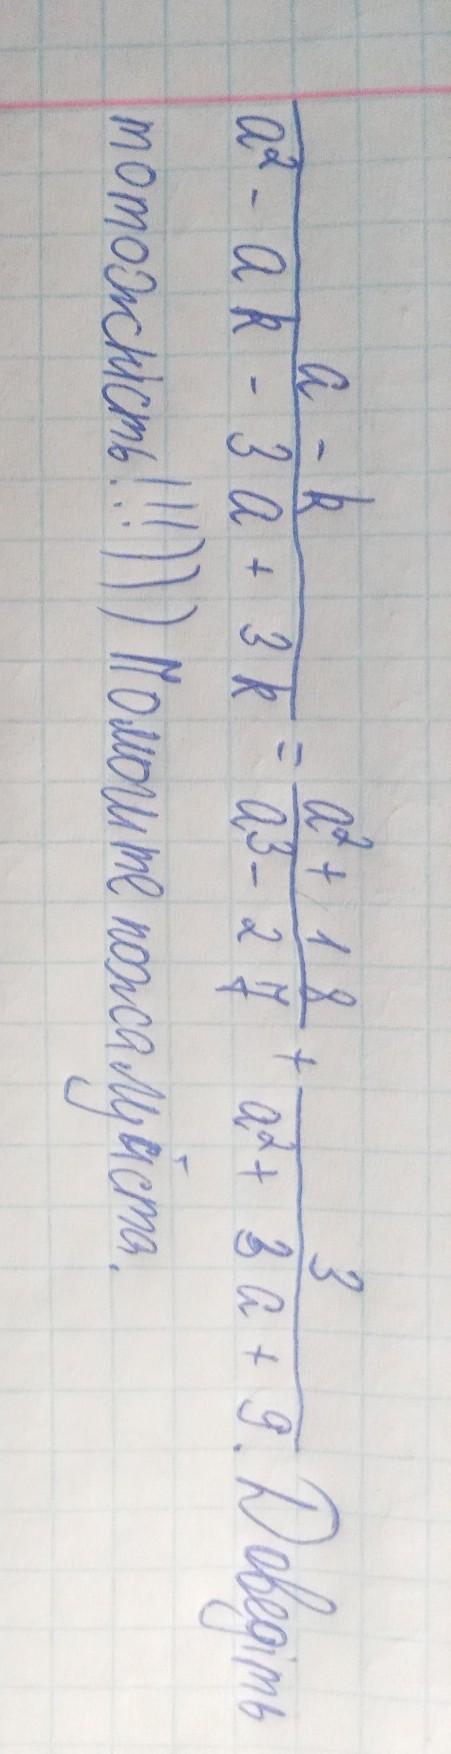 a - k / a² - ak - 3a + 3k = a² + 18 / a³ - 27 + 3 / a² + 3a + 9. Доведіть
тотожність!!!))) Помоите пожалуйста.